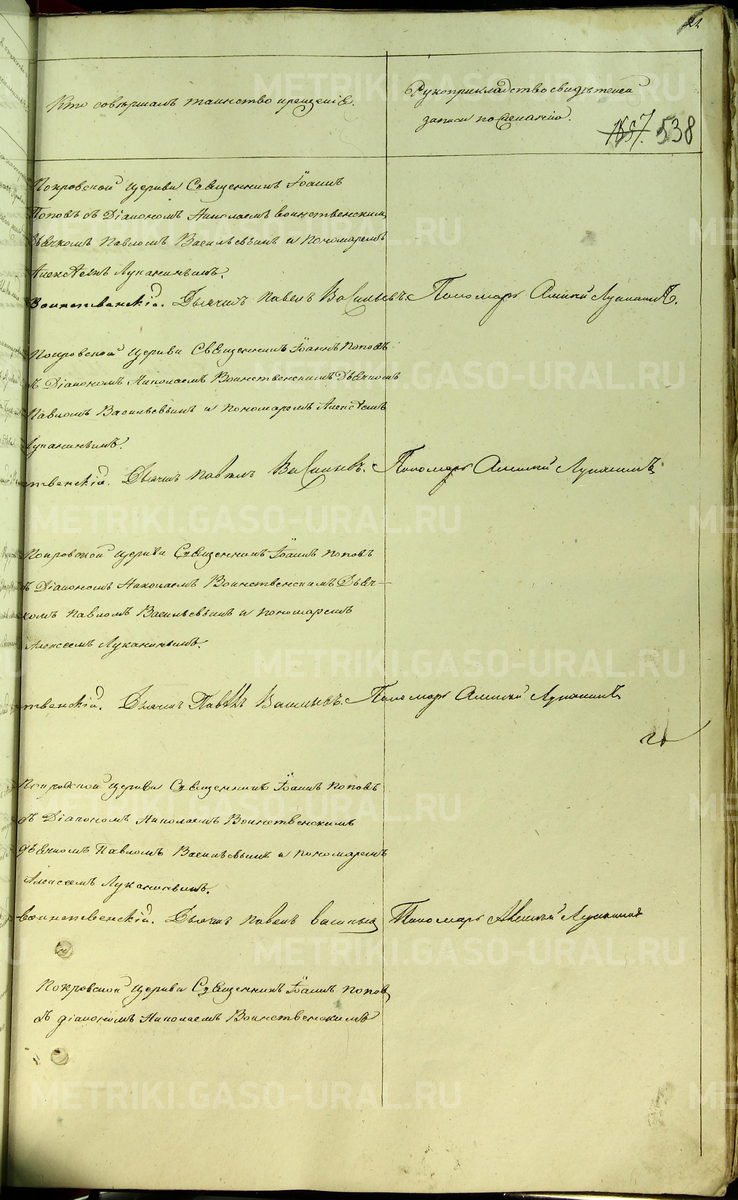 Кто совершалъ таинство крещенiя.
Рукоприкладство свидѣтелей
записи по желанiю.
1657. 538
Покровской Церкви Священникъ Iоаннъ
Поповъ съ Дiакономъ Николаемъ Воинственскимъ,
Дьячкомъ Павломъ Васильевымъ и Пономаремъ
Алексѣемъ Луканинымъ.
Воинственскiй. Дьячекъ Павелъ Васильевъ. Пономарь Алексѣй Луканинъ.
Покровской Церкви Священникъ Iоаннъ Поповъ
съ Дiакономъ Николаемъ Воинственскимъ Дьячкомъ
Павломъ Васильевымъ и Пономаремъ Алексѣемъ
Луканинымъ.
ственскiй. Дьячекъ Павелъ Васильевъ. Пономарь Алексѣй Луканинъ
Покровской Церкви Священникъ Iоаннъ Поповъ
съ Дiакономъ Николаемъ Воинственскимъ Дьяч-
комъ Павломъ Васильевымъ и Пономаремъ
Алексеемъ Луканинымъ.
ственскiй. Дьячекъ Павелъ Васильевъ. Пономарь Алексѣй Луканинъ
Покровской Церкви Священникъ Iоаннъ Поповъ
съ Дiакономъ Николаемъ Воинственскимъ
Дьячкомъ Павломъ Васильевымъ и Пономаремъ
Алексеемъ Луканинымъ.
Воинственскiй. Дьячекъ Павелъ Васильевъ Пономарь Алексѣй Луканинъ
Покровской Церкви Священникъ Iоаннъ Поповъ
съ Дiакономъ Николаемъ Воинственскимъ
METRIKI.GASO-URAL.RU